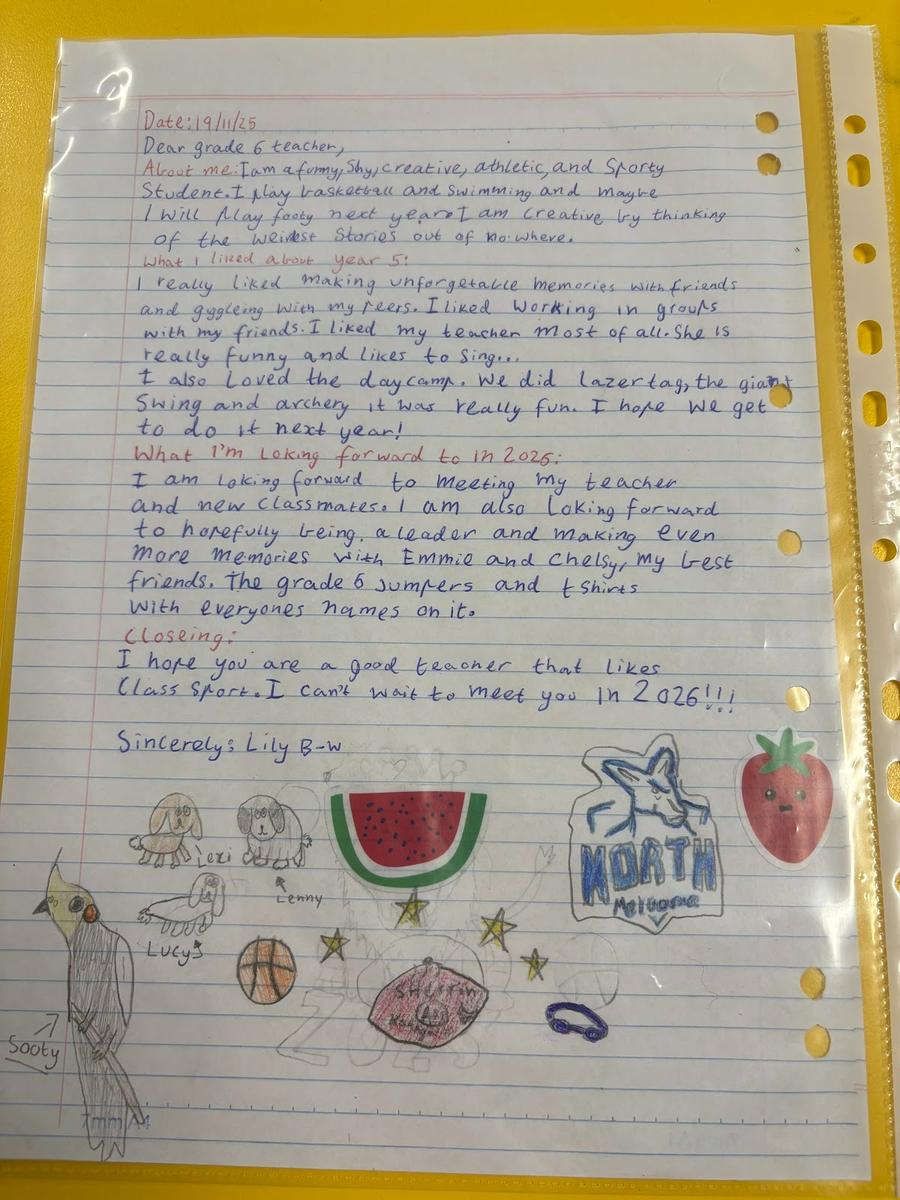 Date: 19/11/25
Dear grade 6 teacher,
About me: I am a funny, Shy, creative, athletic, and Sporty
Student. I play basketball and swimming and maybe
I will play footy next year. I am creative by thinking
of the weirdest Stories out of no where.
What I liked about year 5:
I really liked making unforgetable memories with friends
and giggleing with my Peers. I liked working in groups
with my friends. I liked my teacher most of all. She is
really funny and likes to Sing...
I also Loved the day camp. We did lazer tag, the giant
Swing and archery it was really fun. I hope we get
to do it next year!
What I'm Loking forward to in 2026:
I am loking forward to meeting my teacher
and new Classmates. I am also Loking forward
to hopefully being, a leader and making even
more memories with Emmie and Chelsy, my best
friends. The grade 6 Jumpers and t Shirts
with everyones names on it.
Closeing:
I hope you are a good teacher that likes
Class Sport. I can't wait to meet you in 2026!!!
Sincerely: Lily B-W
Lexi
Lenny
Lucy
NORTH
Melbourne
Sherrin
Sooty
7mm A4